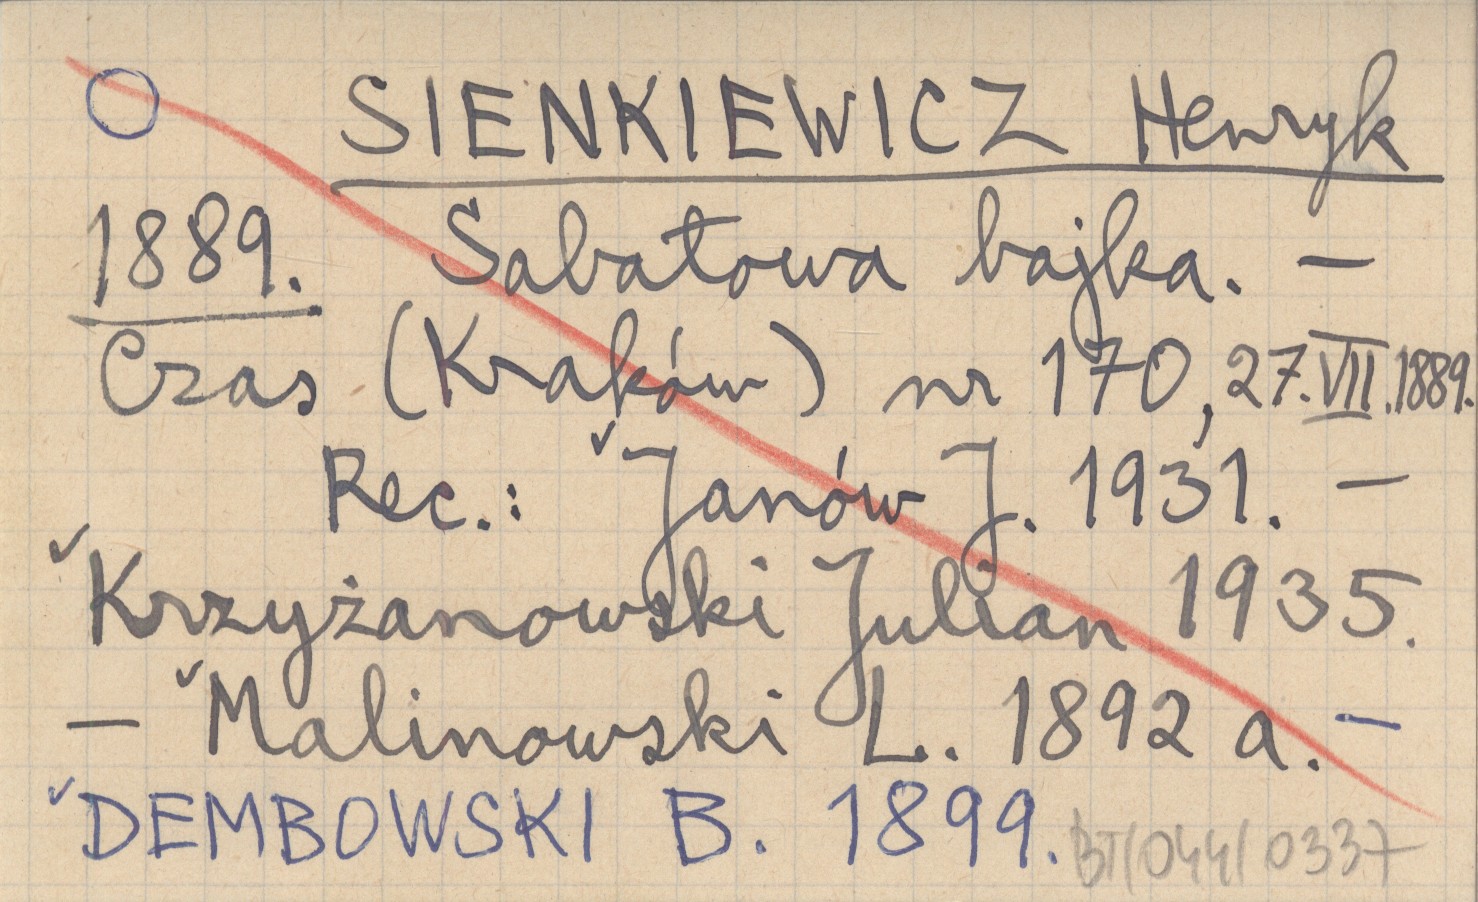 SIENKIEWICZ Henryk
1889. Sabałowa bajka. —
Czas (Kraków) nr 170, 27.VII.1889.
Rec.: Janów J. 1931. —
Krzyżanowski Julian 1935.
— Malinowski L. 1892 a. —
DEMBOWSKI B. 1899.
BT/044/0337